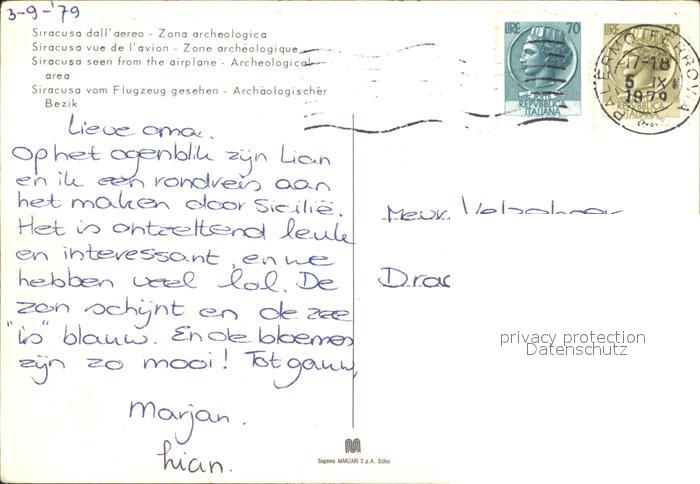 3-9-'79
Siracusa dall'aereo - Zona archeologica
Siracusa vue de l'avion - Zone archéologique
Siracusa seen from the airplane - Archeological
area
Siracusa vom Flugzeug gesehen - Archäologischer
Bezik
LIRE 70
POSTE
REPVBBLICA
ITALIANA
LIRE 50
REPVBBLICA
ITALIANA
PALERMO FERROVIA
17-18
5 IX
1979
Lieve oma.
Op het ogenblik zijn Lian
en ik een rondreis aan
het maken door Sicilië.
Het is ontzettend leuk
en interessant, en we
hebben veel lol. De
zon schijnt en de zee
"is" blauw. En de bloemen
zijn zo mooi! Tot gauw,
Marjan.
Lian.
Mevr.
privacy protection
Datenschutz
Sagome MARZARI S.p.A. Schio